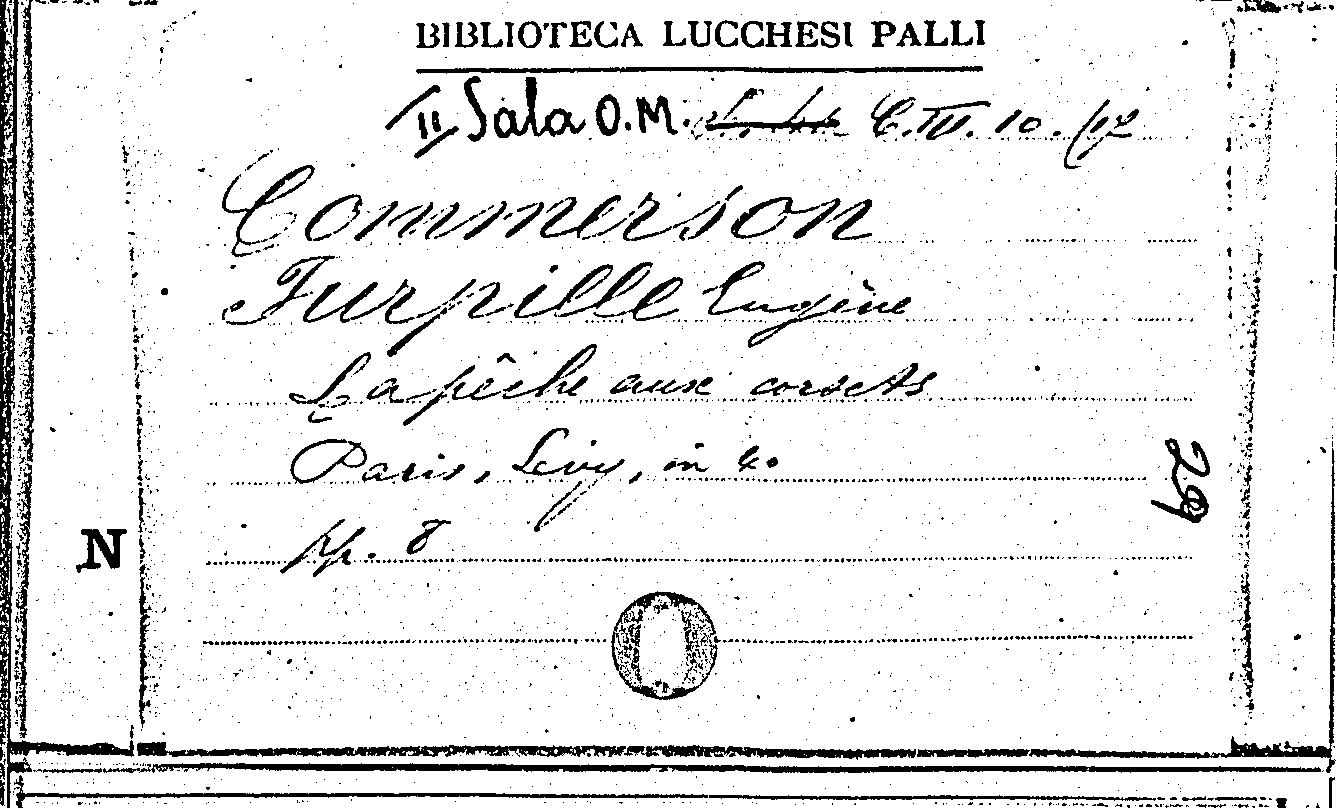 BIBLIOTECA LUCCHESI PALLI
II Sala O.M. C.IV.10.(17
Commerson
Furpille Eugène
La pêche aux corsets
Paris, Levy, in 4o
pp. 8
N
29